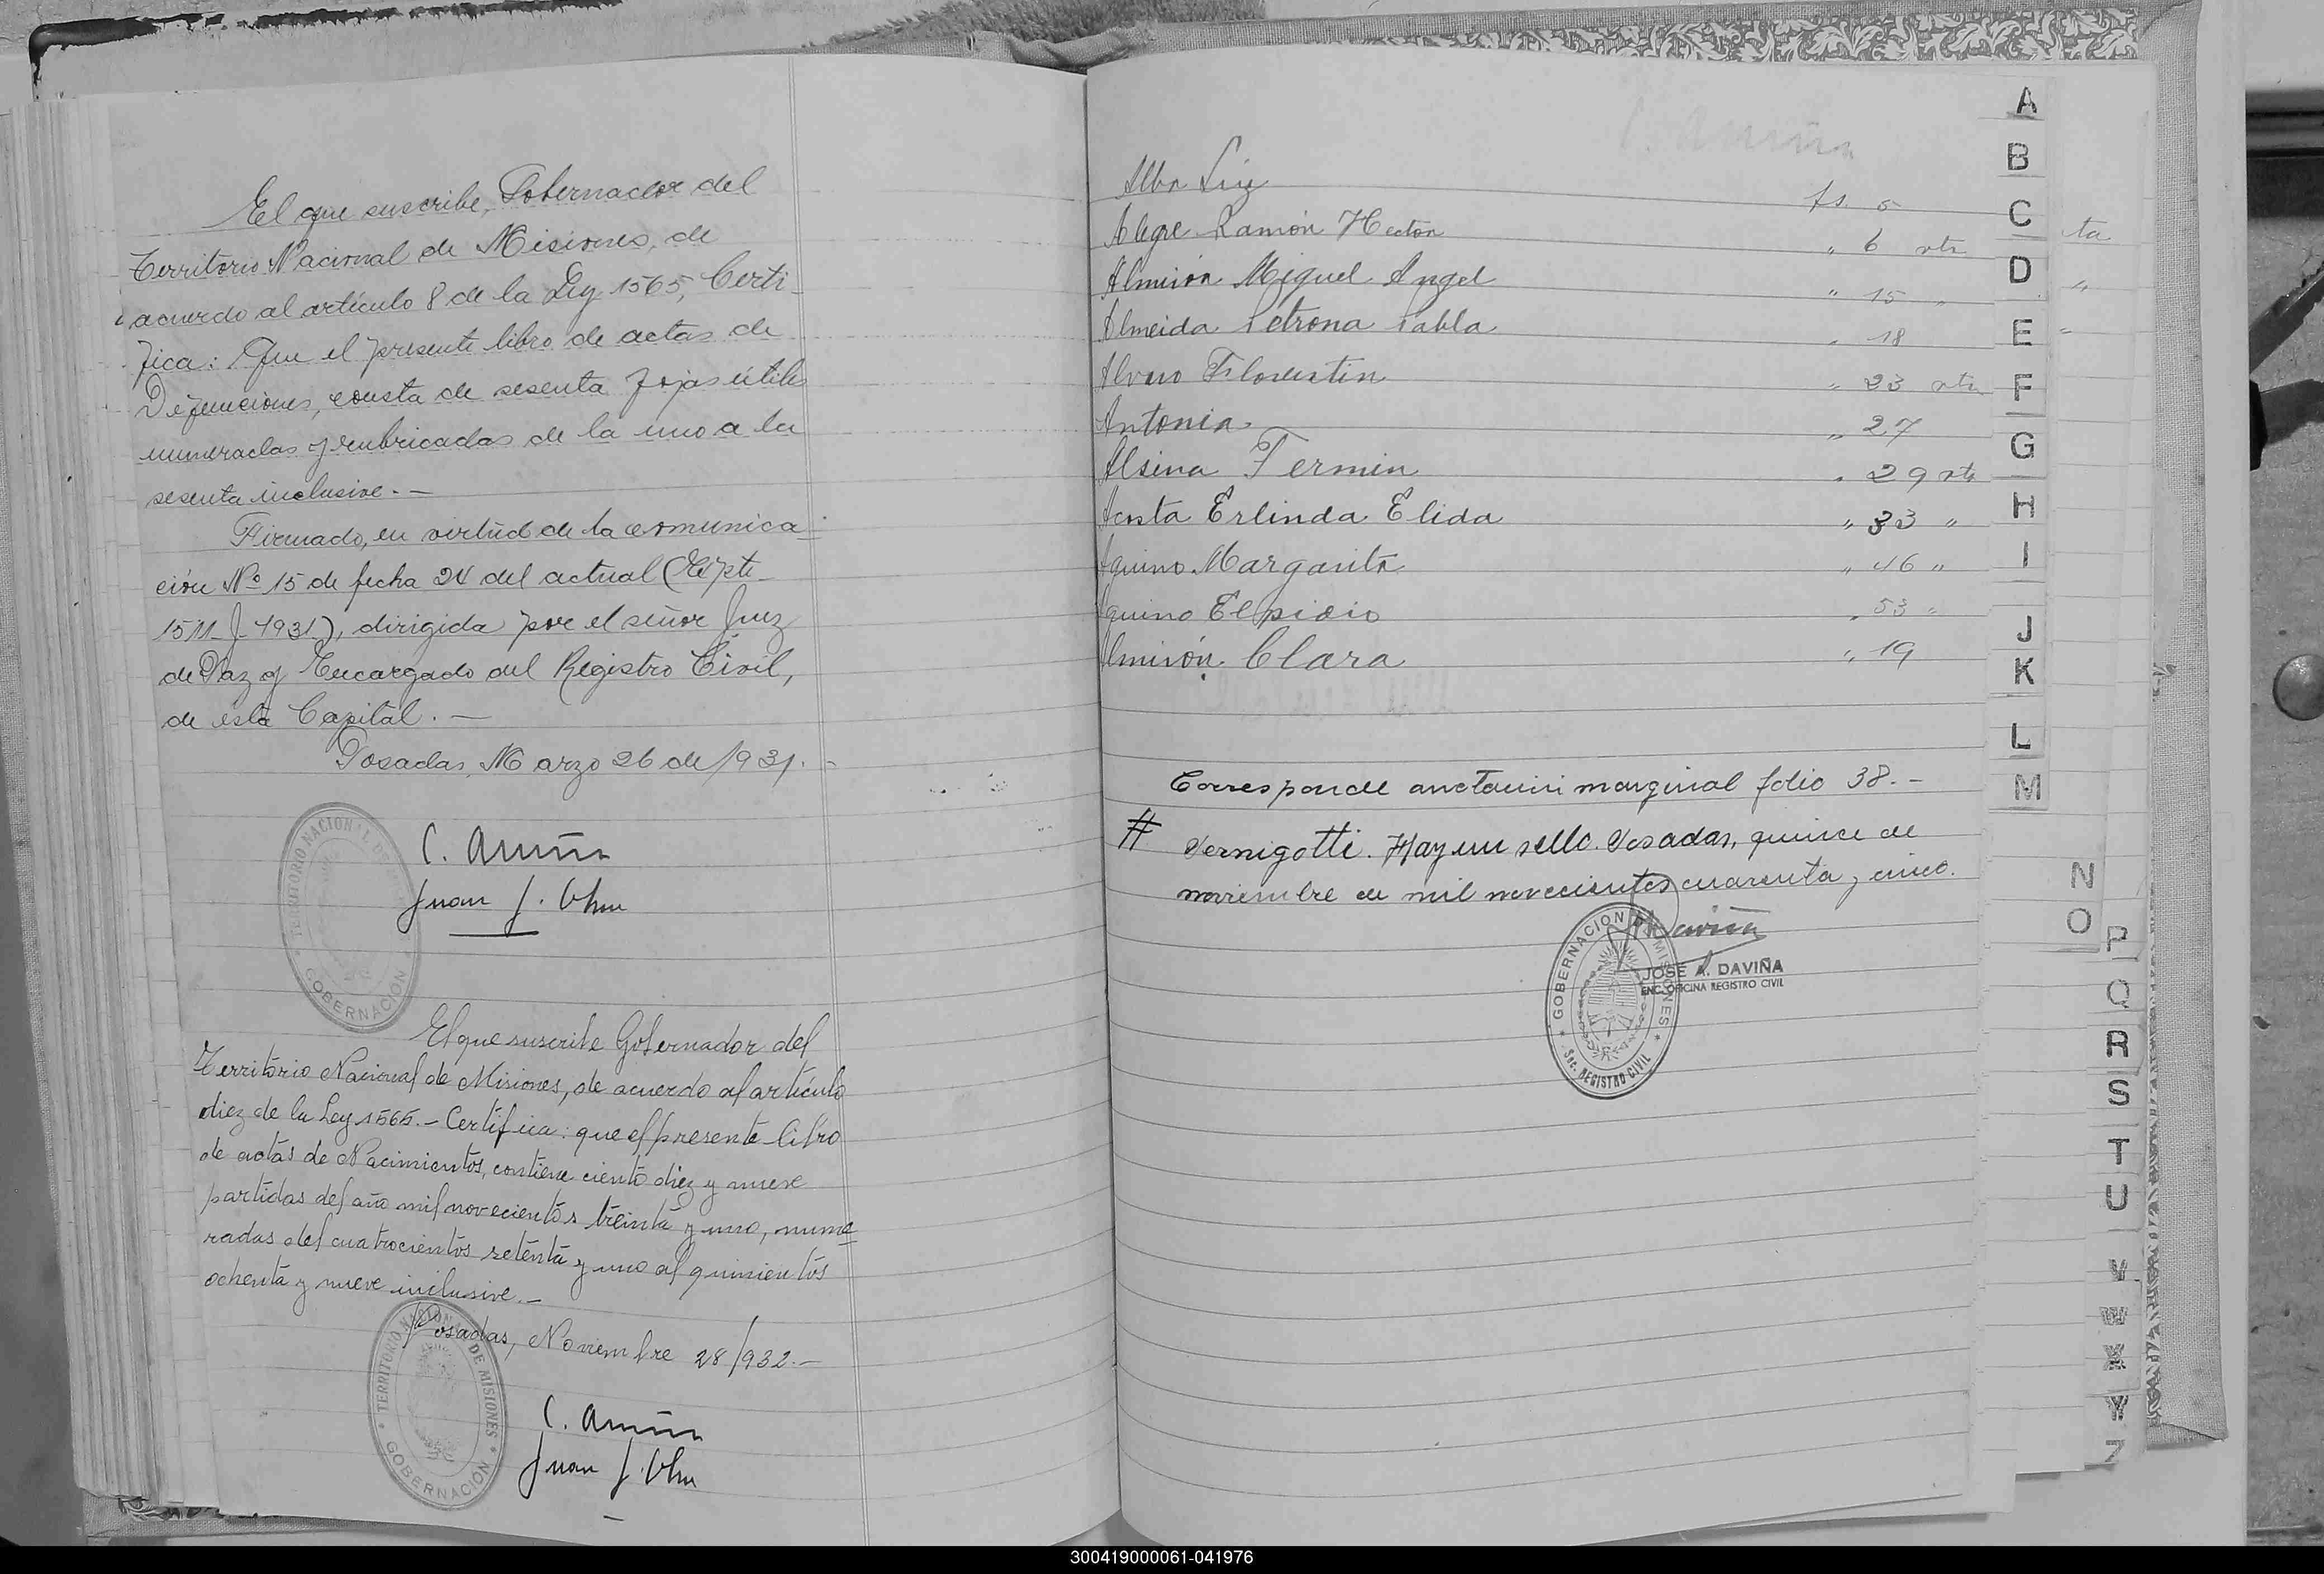 El que suscribe, Gobernador del
Territorio Nacional de Misiones, de
acuerdo al artículo 8 de la Ley 1565, Certi-
fica: Que el presente libro de actas de
Defunciones, consta de sesenta fojas útiles
numeradas y rubricadas de la uno a la
sesenta inclusive. -
Firmado, en virtud de la comunica-
ción Nº 15 de fecha 24 del actual (Expte
1511-J-1931), dirigida por el señor Juez
de Paz y Encargado del Registro Civil,
de esta Capital. -
Posadas, Marzo 26 de 1931. -
TERRITORIO NACIONAL DE
GOBERNACIÓN
C.
Juan J.
El que suscribe Gobernador del
Territorio Nacional de Misiones, de acuerdo al artículo
diez de la Ley 1565. - Certifica: que el presente libro
de actas de Nacimientos, contiene ciento diez y nueve
partidas del año mil novecientos treinta y uno, nume-
radas del cuatrocientos setenta y uno al quinientos
ochenta y nueve inclusive. -
Posadas, Noviembre 28/932. -
TERRITORIO NACIONAL DE MISIONES
GOBERNACIÓN
C.
Juan J.
Alba fs. 5
Alegre Ramón Hector " 6 vta
Almirón Miguel Angel " 15 "
Almeida Petrona Pabla " 18
Florentin " 23 vta
Antonia " 27
Alsina Fermin " 29 vta
Acosta Erlinda Elida " 33 "
Aquino Margarita " 46 "
Aquino Elpidio " 53 "
Almirón Clara " 19
Corresponde marginal folio 38. -
# Vernigotti. Hay un sello. Posadas, quince de
noviembre de mil novecientos cuarenta y cinco.
GOBERNACION DE MISIONES
Sec. REGISTRO CIVIL
JOSÉ A. DAVIÑA
ENC. OFICINA REGISTRO CIVIL
A
B
C
D
E
F
G
H
I
J
K
L
M
N
O
P
Q
R
S
T
U
V
W
X
Y
Z
ta
"
"
300419000061-041976